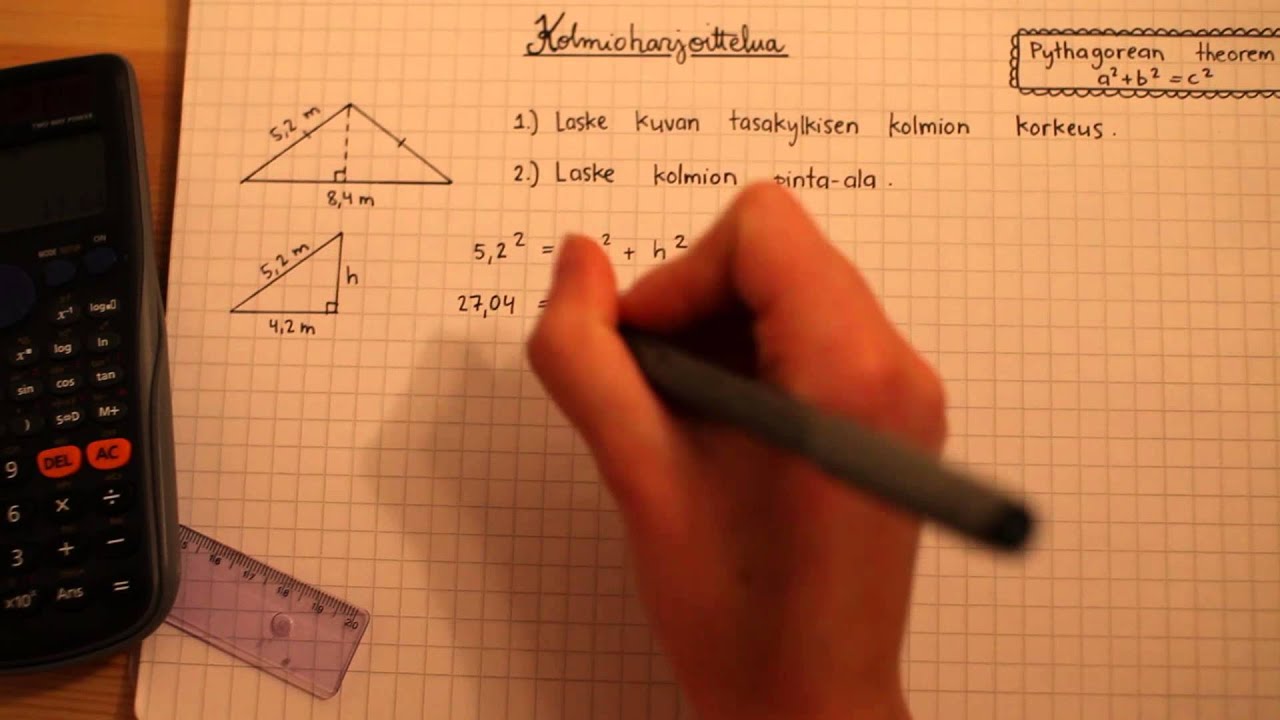 Kolmioharjoittelua
Pythagorean theorem
a² + b² = c²
5,2 m
8,4 m
1.) Laske kuvan tasakylkisen kolmion korkeus.
2.) Laske kolmion pinta-ala.
5,2 m
h
4,2 m
5,2² = ² + h²
27,04 =
TWO WAY POWER
MODE SETUP
ON
x⁻¹
log
ln
sin
cos
tan
)
S⇔D
M+
9
DEL
AC
6
×
÷
3
+
−
×10ˣ
Ans
=
16
17
18
19
20